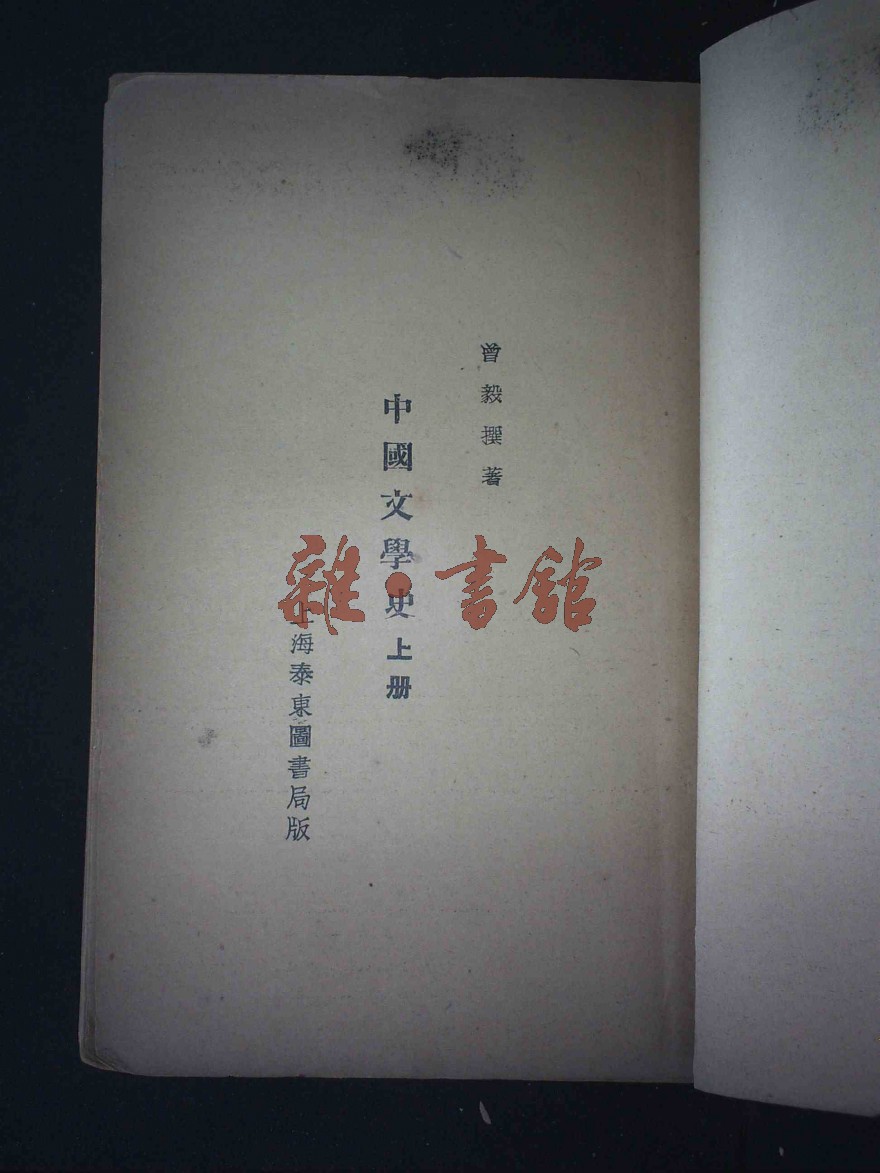 曾毅撰著
中國文學史上册
上海泰東圖書局版
雜·書館